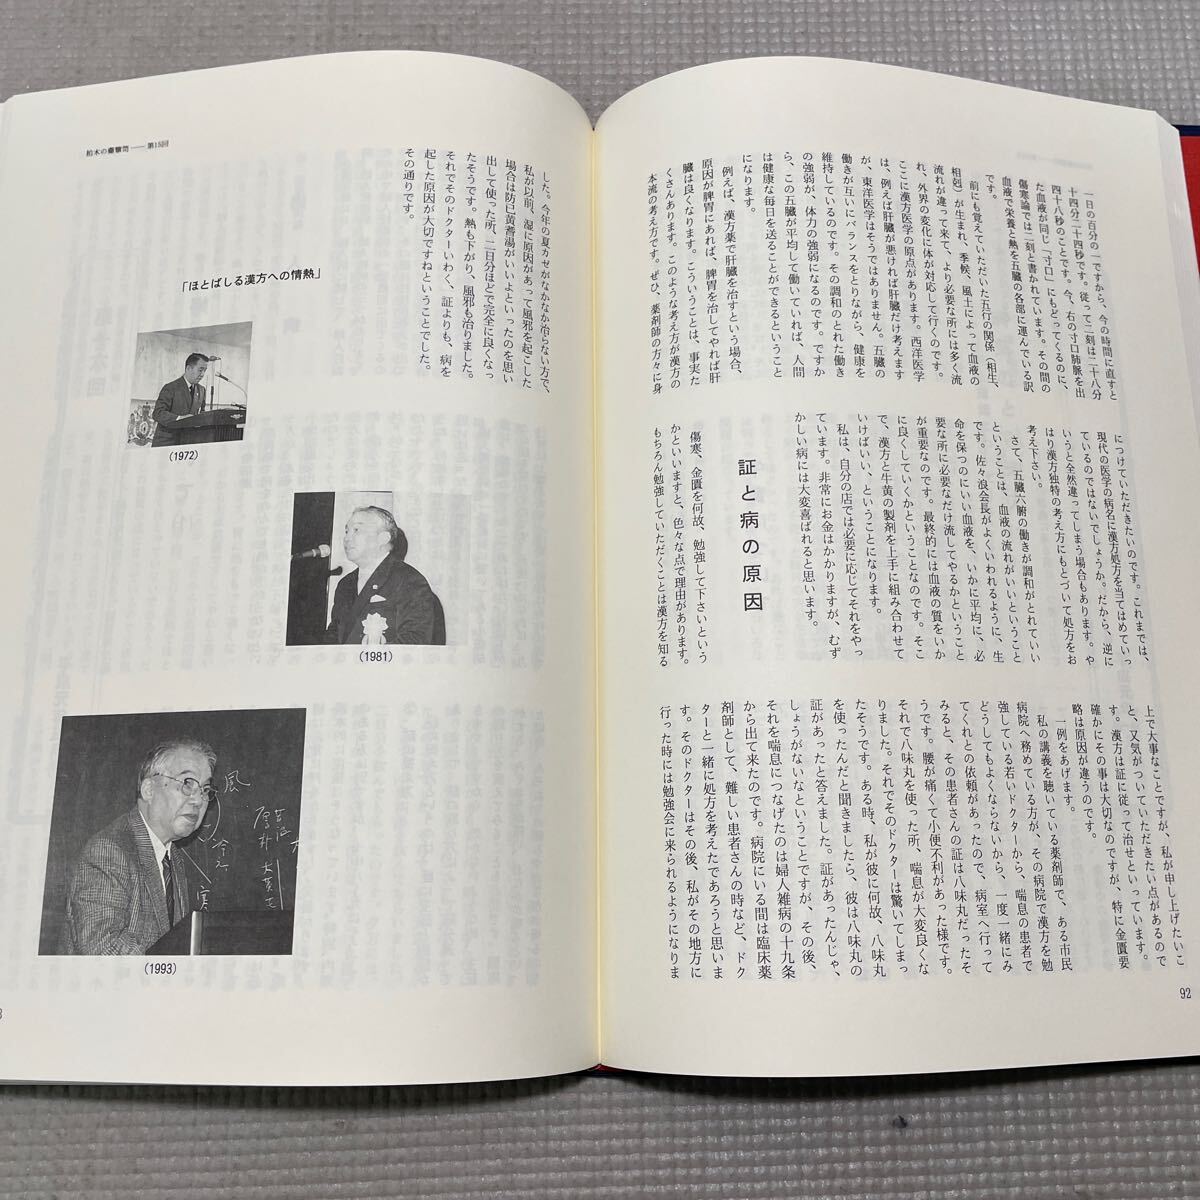 一日の百分の一ですから、今の時間に直すと
十四分二十四秒です。従って二刻は二十八分
四十八秒のことです。今、右の寸口肺脈を出
た血液が同じ「寸口」にもどってくるのに、
傷寒論では二刻と書かれています。その間の
血液で栄養と熱を五臓の各部に運んでいる訳
です。
前にも覚えていただいた五行の関係（相生、
相剋）が生まれ、季候、風土によって血液の
流れが違って来て、より必要な所には多く流
れ、外界の変化に体が対応して行くのです。
ここに漢方医学の原点があります。西洋医学
は、例えば肝臓が悪ければ肝臓だけ考えます
が、東洋医学はそうではありません。五臓の
働きが互いにバランスをとりながら、健康を
維持しているのです。その調和のとれた働き
の強弱が、体力の強弱になるのです。ですか
ら、この五臓が平均して働いていれば、人間
は健康な毎日を送ることができるということ
になります。
例えば、漢方薬で肝臓を治すという場合、
原因が脾胃にあれば、脾胃を治してやれば肝
臓は良くなります。こういうことは、事実た
くさんあります。このような考え方が漢方の
本流の考え方です。ぜひ、薬剤師の方々に身
につけていただきたいのです。これまでは、
現代の医学の病名に漢方処方を当てはめていっ
ているのではないでしょうか。だから、逆に
いうと全然違ってしまう場合もあります。や
はり漢方独特の考え方にもとづいて処方をお
考え下さい。
さて、五臓六腑の働きが調和がとれていい
ということは、血液の流れがいいということ
です。佐々浪会長がよくいわれるように、生
命を保つのにいい血液を、いかに平均に、必
要な所に必要なだけ流してやるかということ
が重要なのです。最終的には血液の質をいか
に良くしていくかということなのです。そこ
で、漢方と牛黄の製剤を上手に組み合わせて
いけばいい、ということになります。
私は、自分の店では必要に応じてそれをやっ
ています。非常にお金はかかりますが、むず
かしい病には大変喜ばれると思います。
証と病の原因
傷寒、金匱を何故、勉強して下さいという
かといいますと、色々な点で理由があります。
もちろん勉強していただくことは漢方を知る
上で大事なことですが、私が申し上げたいこ
と、又気がついていただきたい点があるので
す。漢方は証に従って治せといっています。
確かにその事は大切なのですが、特に金匱要
略は原因が違うのです。
一例をあげます。
私の講義を聴いている薬剤師で、ある市民
病院へ務めている方が、その病院で漢方を勉
強している若いドクターから、喘息の患者で
どうしてもよくならないから、一度一緒にみ
てくれとの依頼があったので、病室へ行って
みると、その患者さんの証は八味丸だったそ
うです。腰が痛くて小便不利があった様です。
それで八味丸を使った所、喘息が大変良くな
りました。それでそのドクターは驚いてしまっ
たそうです。ある時、私が彼に何故、八味丸
を使ったんだと聞きましたら、彼は八味丸の
証があったと答えました。証があったんじゃ、
しょうがないなということですが、その後、
それを喘息につなげたのは婦人雑病の十九条
から出て来たのです。病院にいる間は臨床薬
剤師として、難しい患者さんの時など、ドク
ターと一緒に処方を考えたであろうと思いま
す。そのドクターはその後、私がその地方に
行った時には勉強会に来られるようになりま
92
柏木の薬嚢笥――第15回
した。今年の夏カゼがなかなか治らない方で、
私が以前、湿に原因があって風邪を起こした
場合は防已黄蓍湯がいいよといったのを思い
出して使った所、二日分ほどで完全に良くなっ
たそうです。熱も下がり、風邪も治りました。
それでそのドクターいわく、証よりも、病を
起した原因が大切ですねということでした。
その通りです。
「ほとばしる漢方への情熱」
(1972)
(1981)
風
(1993)
3